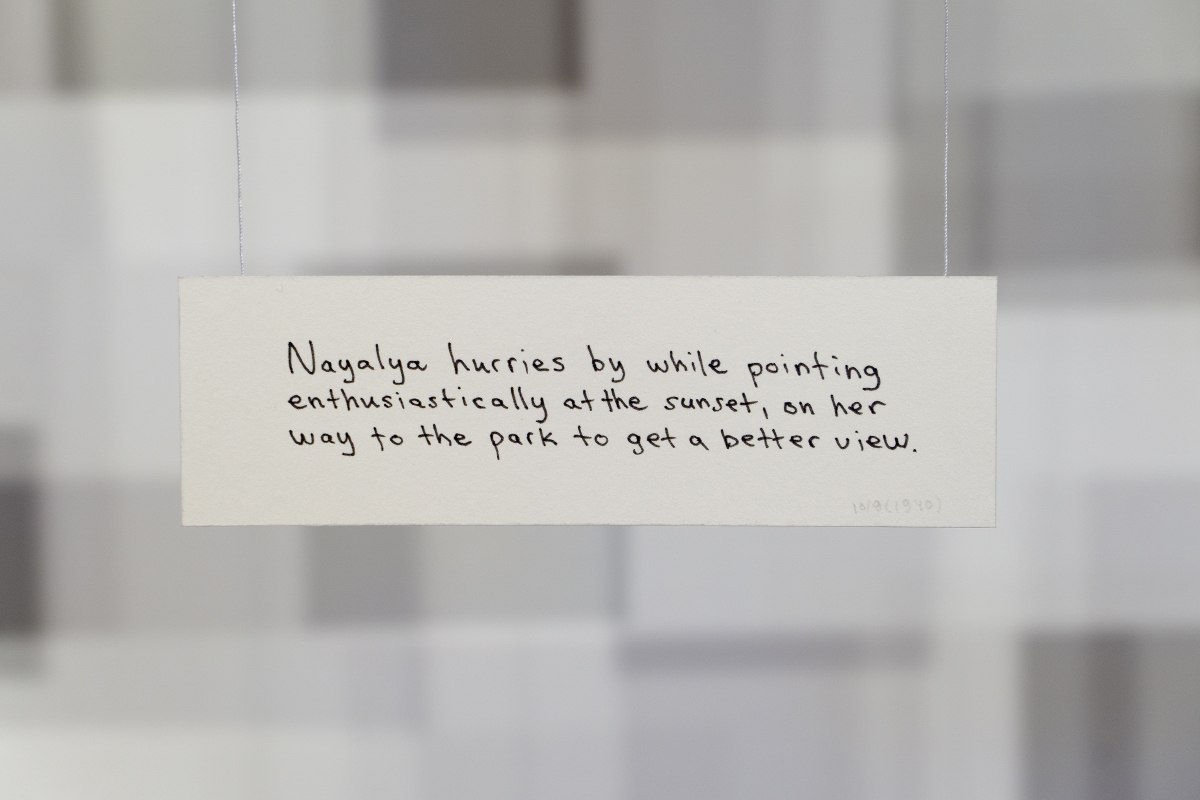 Nayalya hurries by while pointing
enthusiastically at the sunset, on her
way to the park to get a better view.